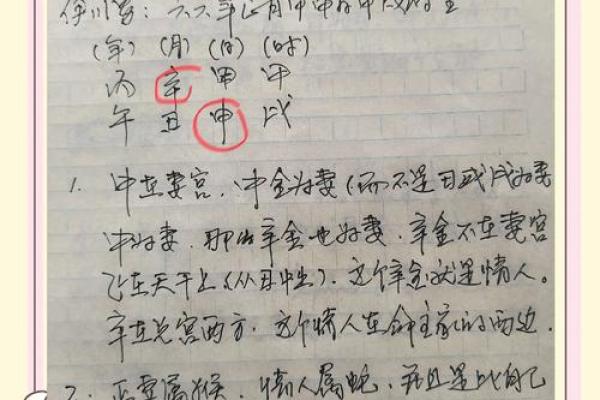 (年) (月) (日) (时)
丙 辛 甲 甲
午 丑 申 戌
1. 申在妻宫,申金为妻(而不是丑或戌为妻
申为妻,那么辛金也为妻,辛金不在妻宫
飞在天干上(从丑中出),这个辛金就是情人。
辛在兑宫西方,这个情人在命主家的西边.
2. 正妻属猴,情人属蛇,并且是比自己